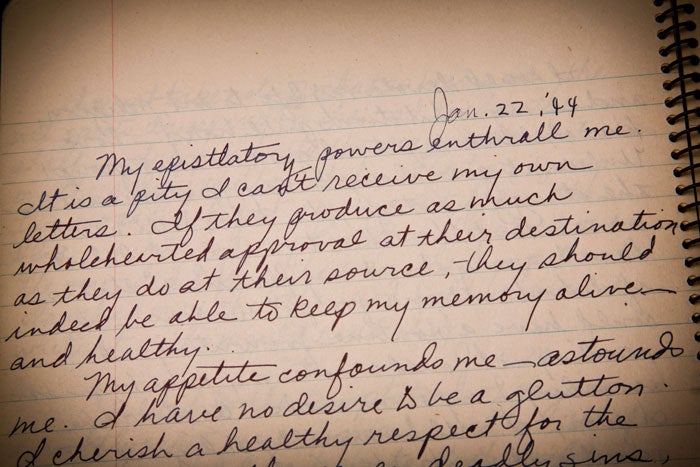 Jan. 22, '44
My epistlatory powers enthrall me.
It is a pity I can't receive my own
letters. If they produce as much
wholehearted approval at their destination
as they do at their source, they should
indeed be able to keep my memory alive—
and healthy.
My appetite confounds me—astounds
me. I have no desire to be a glutton.
I cherish a healthy respect for the
deadly sins,